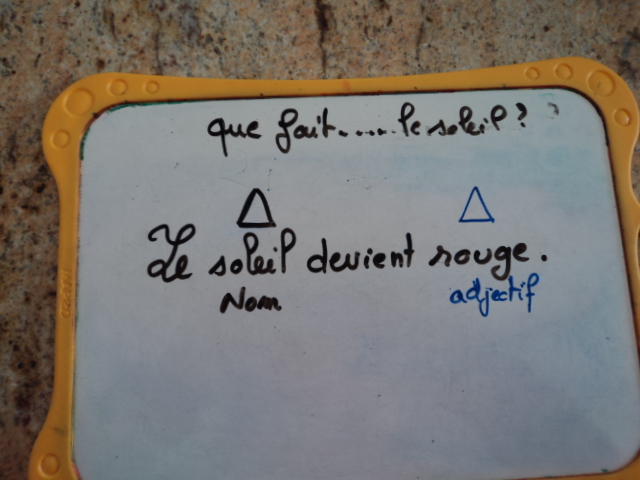 que fait.....le soleil ?
Le soleil devient rouge.
Nom adjectif